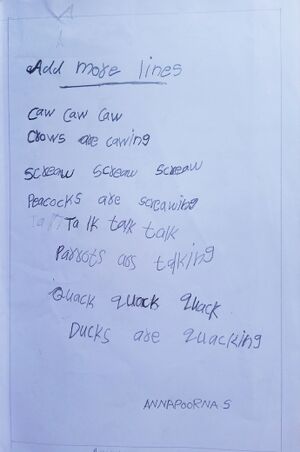 A
A
Add more lines
Caw Caw Caw
Crows are cawing
Screaw Screaw Screaw
Peacocks are screawing
Talk Talk talk talk
Parrots ars talking
Quack quack quack
Ducks are quacking
ANNAPOORNA.S